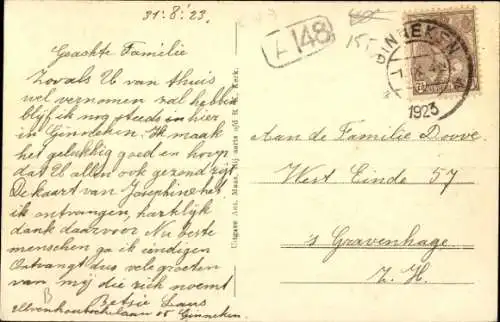 31.8.'23.
Geachte Familie
Zooals U van thuis
wel vernomen zal hebben
blijf ik nog steeds in hier
in Ginneken. Ik maak
het gelukkig goed en hoop
dat U allen ook gezond zijt
De kaart van Josephine heb
ik ontvangen hartelijk
dank daarvoor Nu beste
menschen ga ik eindigen
Ontvangt dus vele groeten
van mij die zich noemt
Betsie
B
Ginneken.
Uitgave Ant. Maas,
A 148
GINNEKEN
1923
Aan de Familie Douve
West Einde 57
's Gravenhage
Z. H.